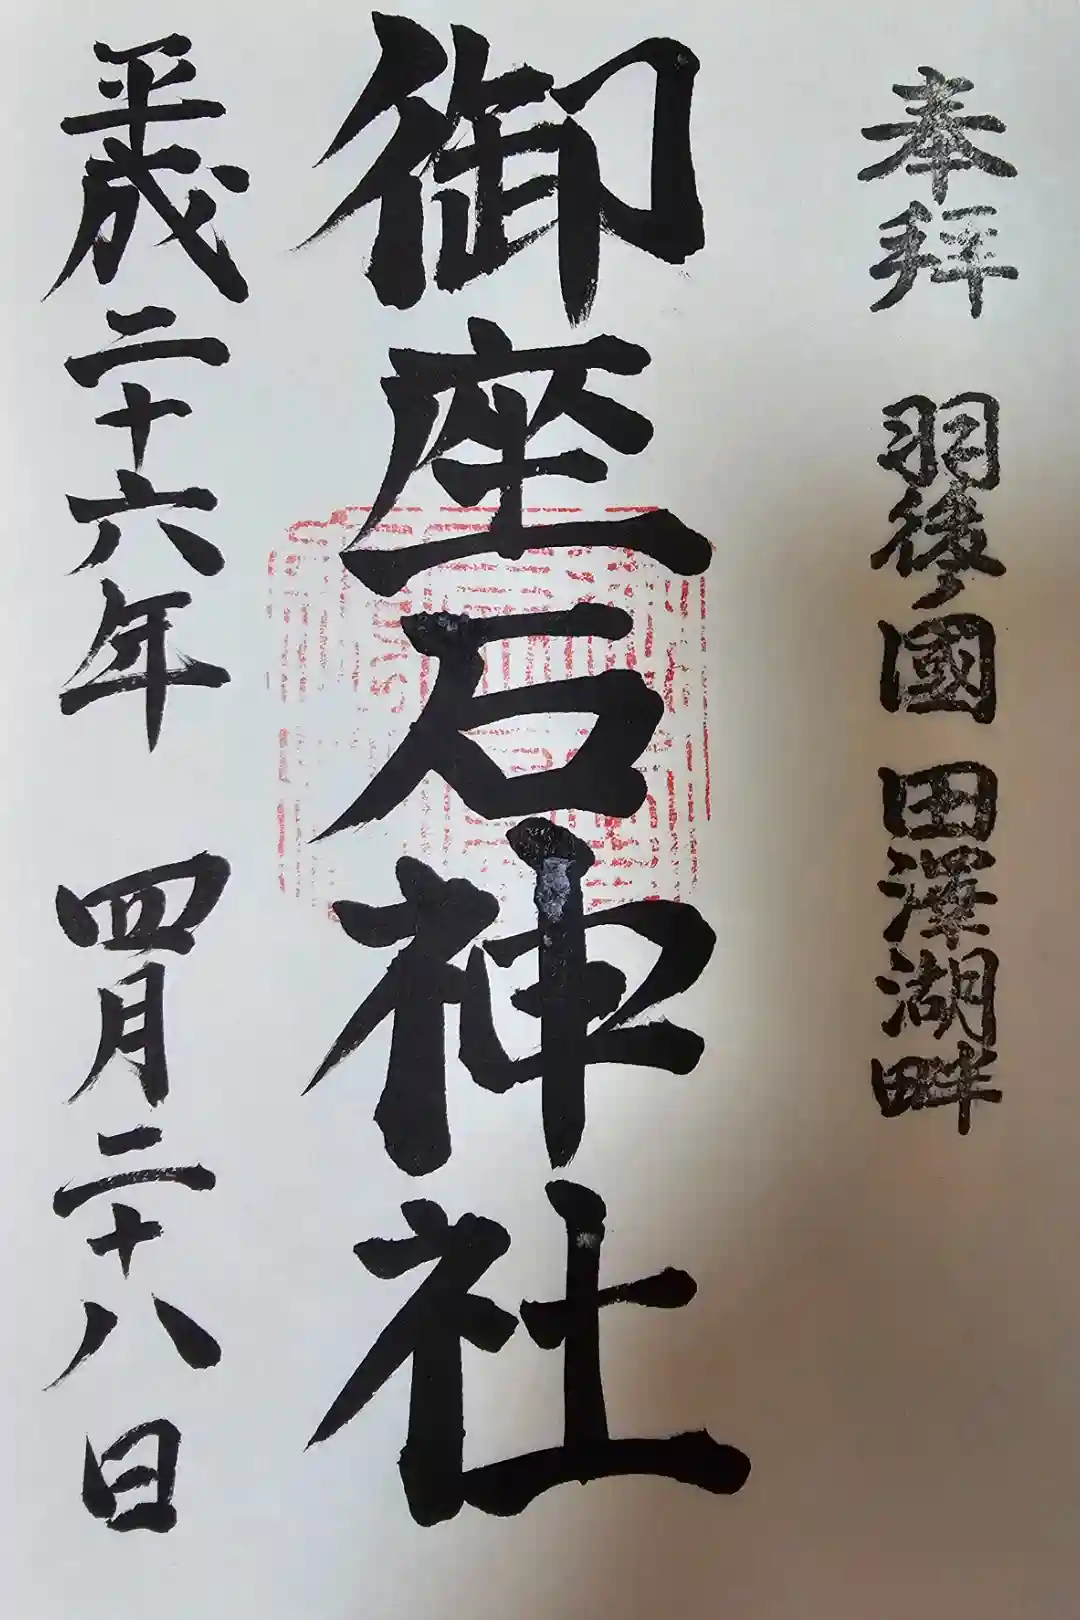 奉拝 羽後ノ國 田澤湖畔
御座石神社
平成二十六年 四月二十八日